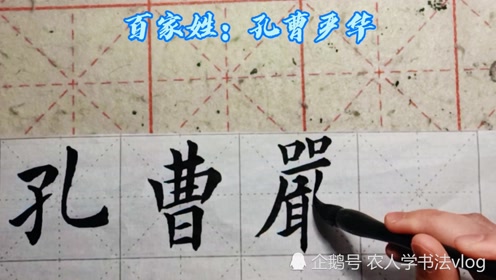 百家姓：孔曹严华
孔曹嚴
企鹅号 农人学书法vlog